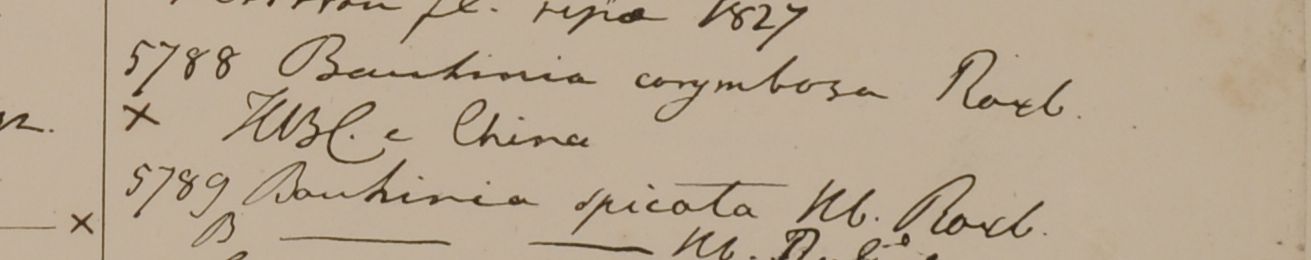 fl. ripae 1827
5788 Bauhinia corymbosa Roxb.
x HBC. e China
5789 Bauhinia spicata Hb. Roxb.
x B ——— ——— Hb.